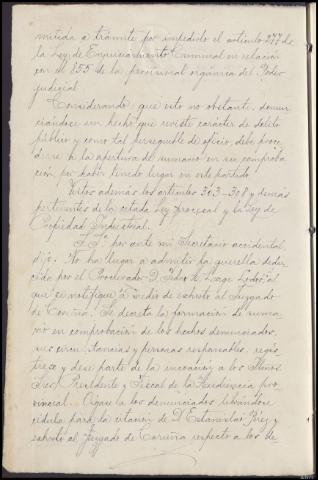 mitida a trámite por impedirlo el artículo 277 de
la Ley de Enjuiciamiento Criminal en relación
con el 855 de la provisional orgánica del Poder
judicial
Considerando que esto no obstante, denun
ciándose un hecho que reviste carácter de delito
público y como tal perseguible de oficio, debe proce
derse a la apertura de sumario en su comproba
ción por haber tenido lugar en este partido.
Vistos además los artículos 303-308 y demás
pertinentes de la citada Ley procesal y la Ley de
Propiedad Industrial.
S. Sª. por ante mi Secretario accidental,
dijo: No ha lugar a admitir la querella dedu
cida por el Procurador D. Pedro A. Lage
que se notifique a medio de exhorto al Juzgado
de Coruña. Se decreta la formación de suma
rio en comprobación de los hechos denunciados,
sus circunstancias y personas responsables, regís
trese y dese parte de la incoación a los Iltmos
Sres. Presidente y Fiscal de la Audiencia pro
vincial. Oígase a los denunciados librándose
cédula para la citación de D Estanislao Pérez y
exhorto al Juzgado de Coruña respecto a los de